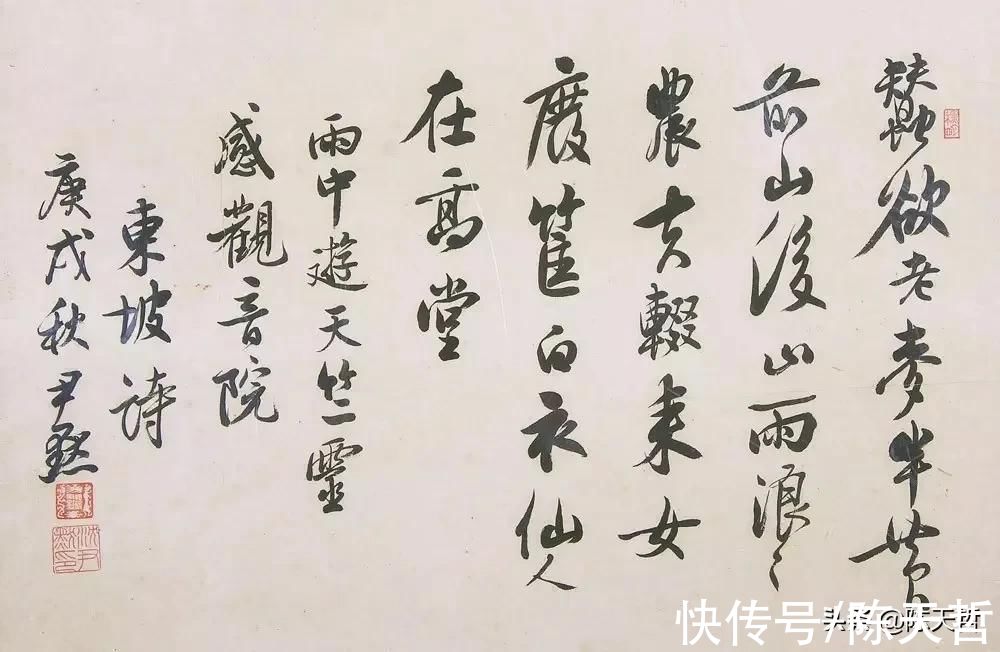 蠶欲老麥半黃
前山後山雨浪〻
農夫輟耒女
廢筐白衣仙人
在高堂
雨中遊天竺靈
感觀音院
東坡詩
庚戌秋尹默
沈尹默印
快传号/陈天哲
头条 @陈天哲